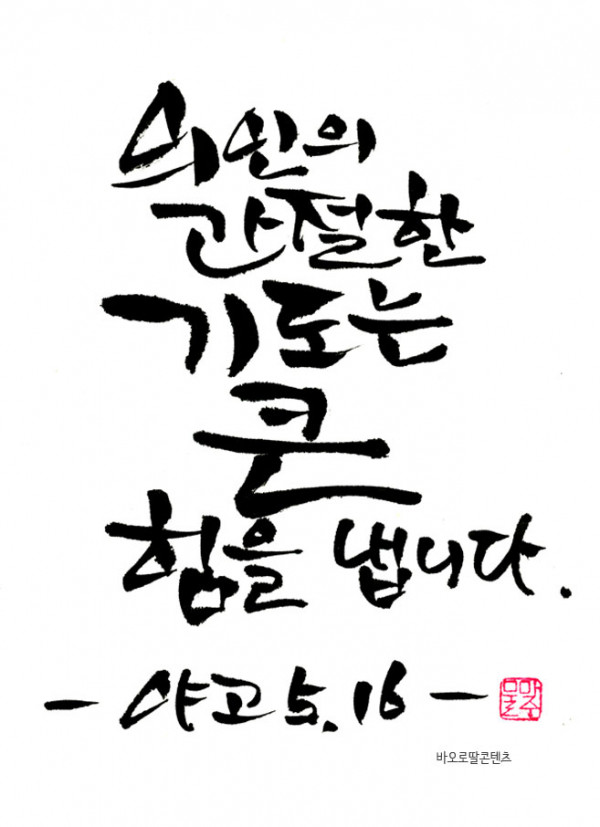 의인의
간절한
기도는
큰
힘을 냅니다.
- 야고 5.16 -
바오로딸콘텐츠